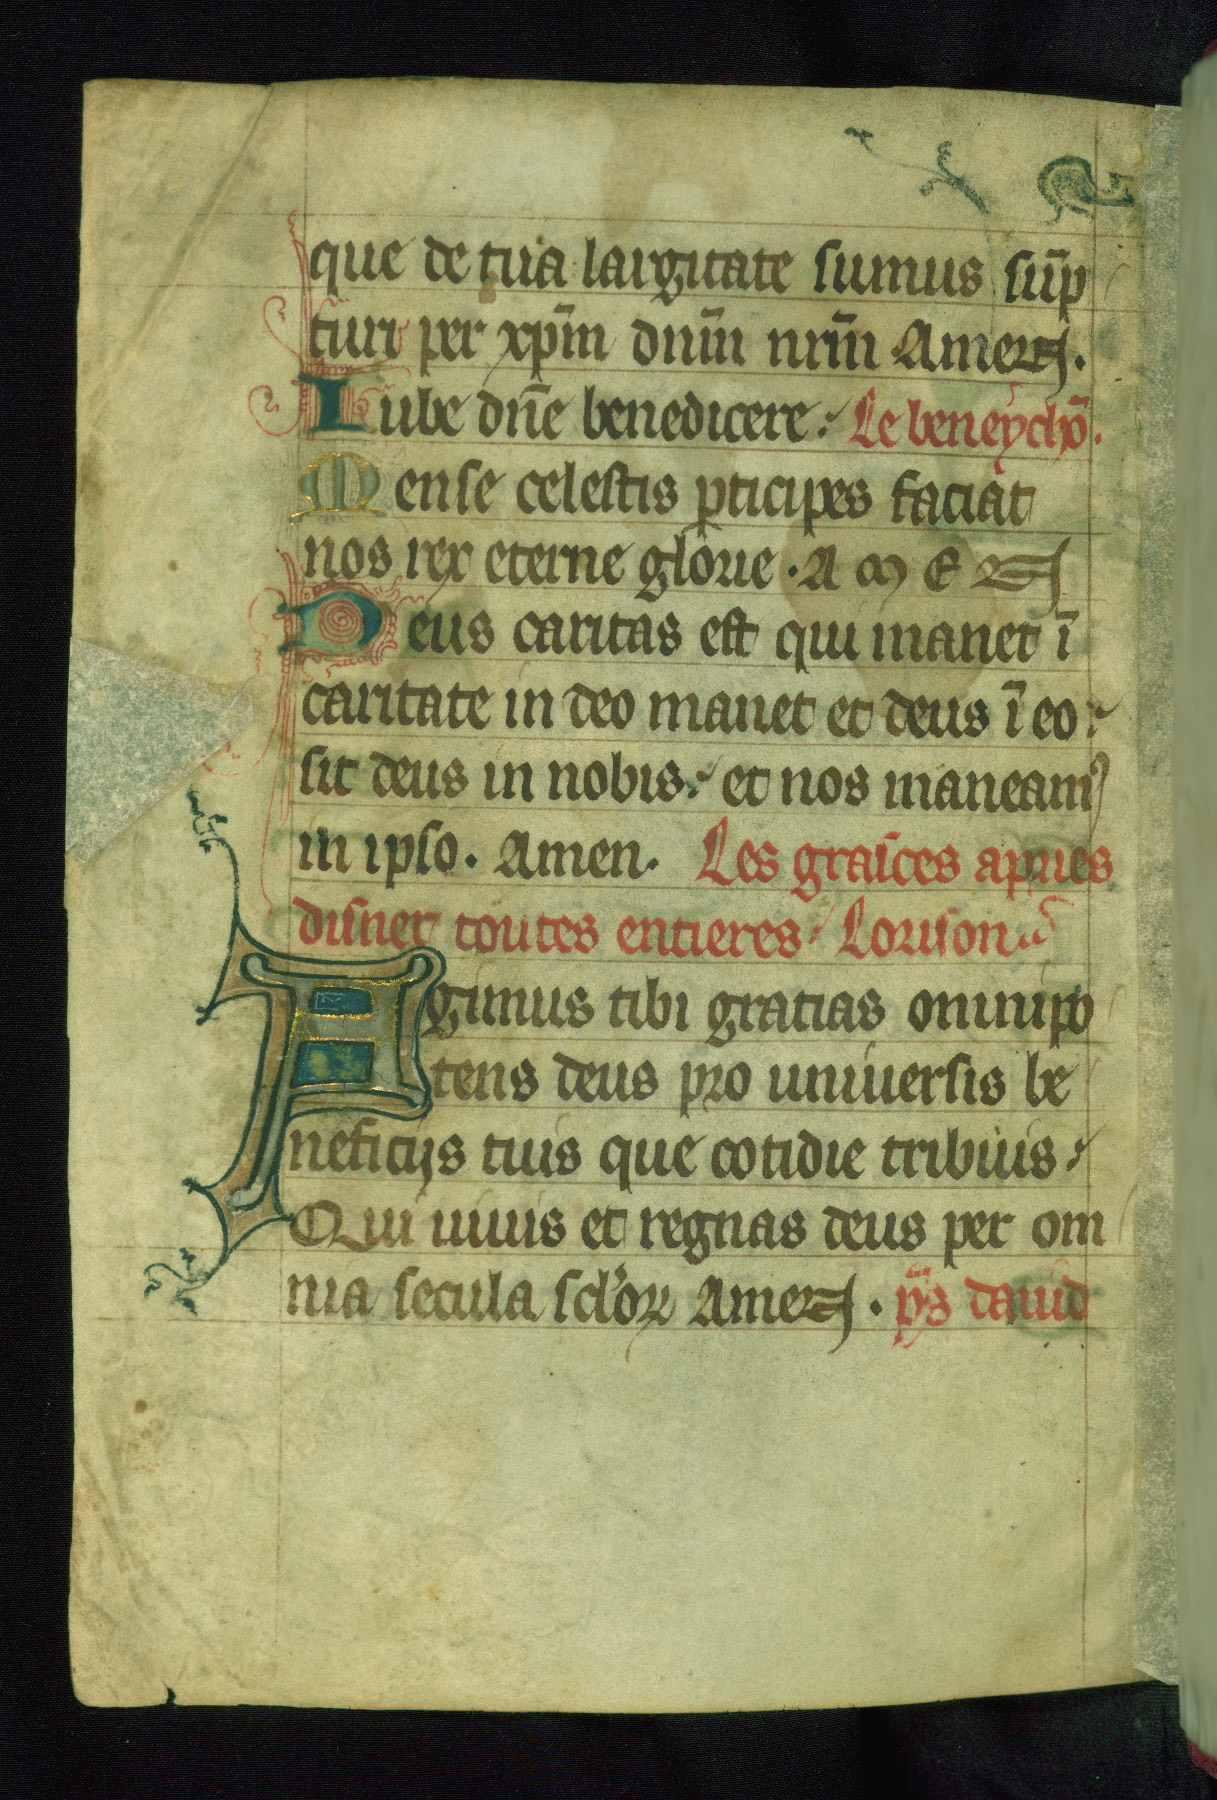 que de tua largitate sumus sūp
turi per xp̄m dnūm nr̄m Amen.
Iube dn̄e benedicere: Le beneychō.
Mense celestis pticipes faciat
nos rex eterne glorie. A M E N
Deus caritas est qui manet ī
caritate in deo manet et deus ī eo:
sit deus in nobis: et nos maneamꝰ
in ipso. Amen. Les graīces apries
disner toutes entieres: Lorison
Agimus tibi gratias omnipo
tens deus pro universis be
neficijs tuis que cotidie tribuis:
Qui uiuis et regnas deus per om
nia secula scl'oꝝ Amen. p̄s dauid